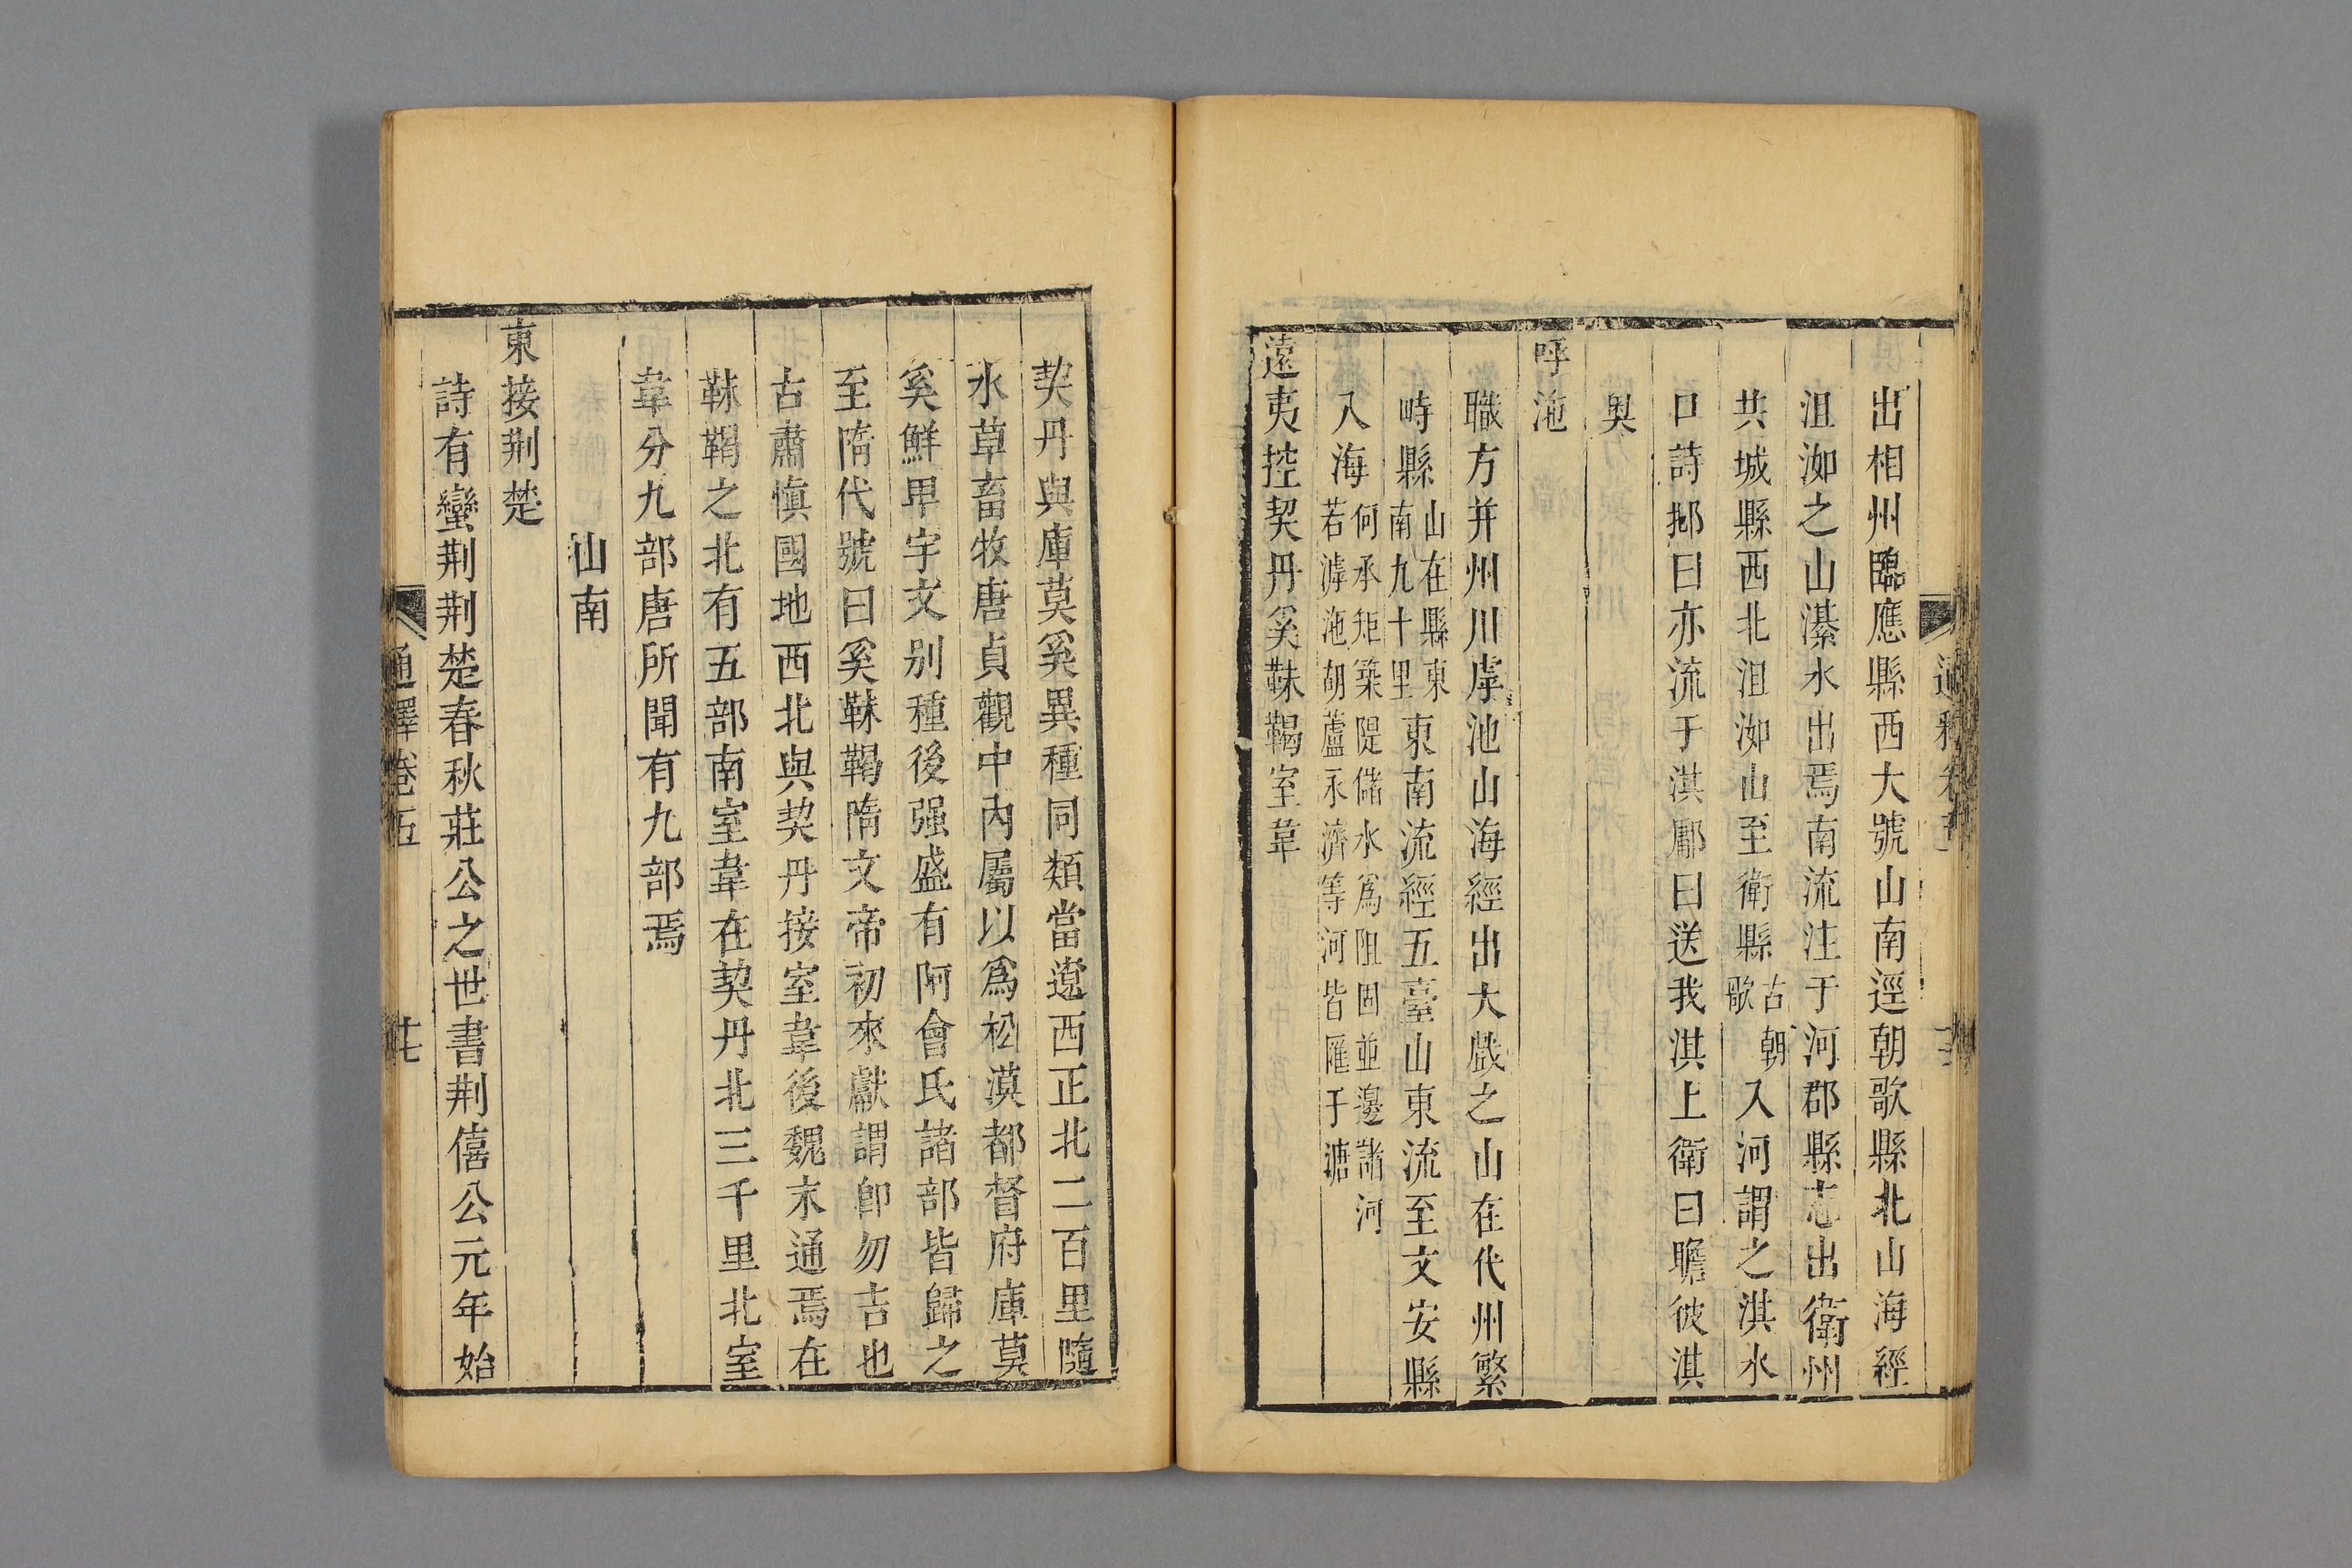 出相州臨應縣西大號山南逕朝歌縣北山海經
沮洳之山濝水出焉南流注于河郡縣志出衛州
共城縣西北沮洳山至衛縣古朝歌入河謂之淇水
口詩邶曰亦流于淇鄘曰送我淇上衛曰瞻彼淇
奥
呼沲
職方并州川虖池山海經出大戲之山在代州繁
畤縣山在縣東南九十里東南流經五臺山東流至文安縣
入海何承矩築隄儲水爲阻固並邊諸河若滹沲胡蘆永濟等河皆匯于塘
遠夷控契丹奚靺鞨室韋
契丹與庫莫奚異種同類當遼西正北二百里隨
水草畜牧唐貞觀中內屬以爲松漠都督府庫莫
奚鮮卑宇文别種後强盛有阿會氏諸部皆歸之
至隋代號曰奚靺鞨隋文帝初來獻謂卽勿吉也
古肅慎國地西北與契丹接室韋後魏末通焉在
靺鞨之北有五部南室韋在契丹北三千里北室
韋分九部唐所聞有九部焉
山南
東接荆楚
詩有蠻荆荆楚春秋莊公之世書荆僖公元年始
通釋卷五